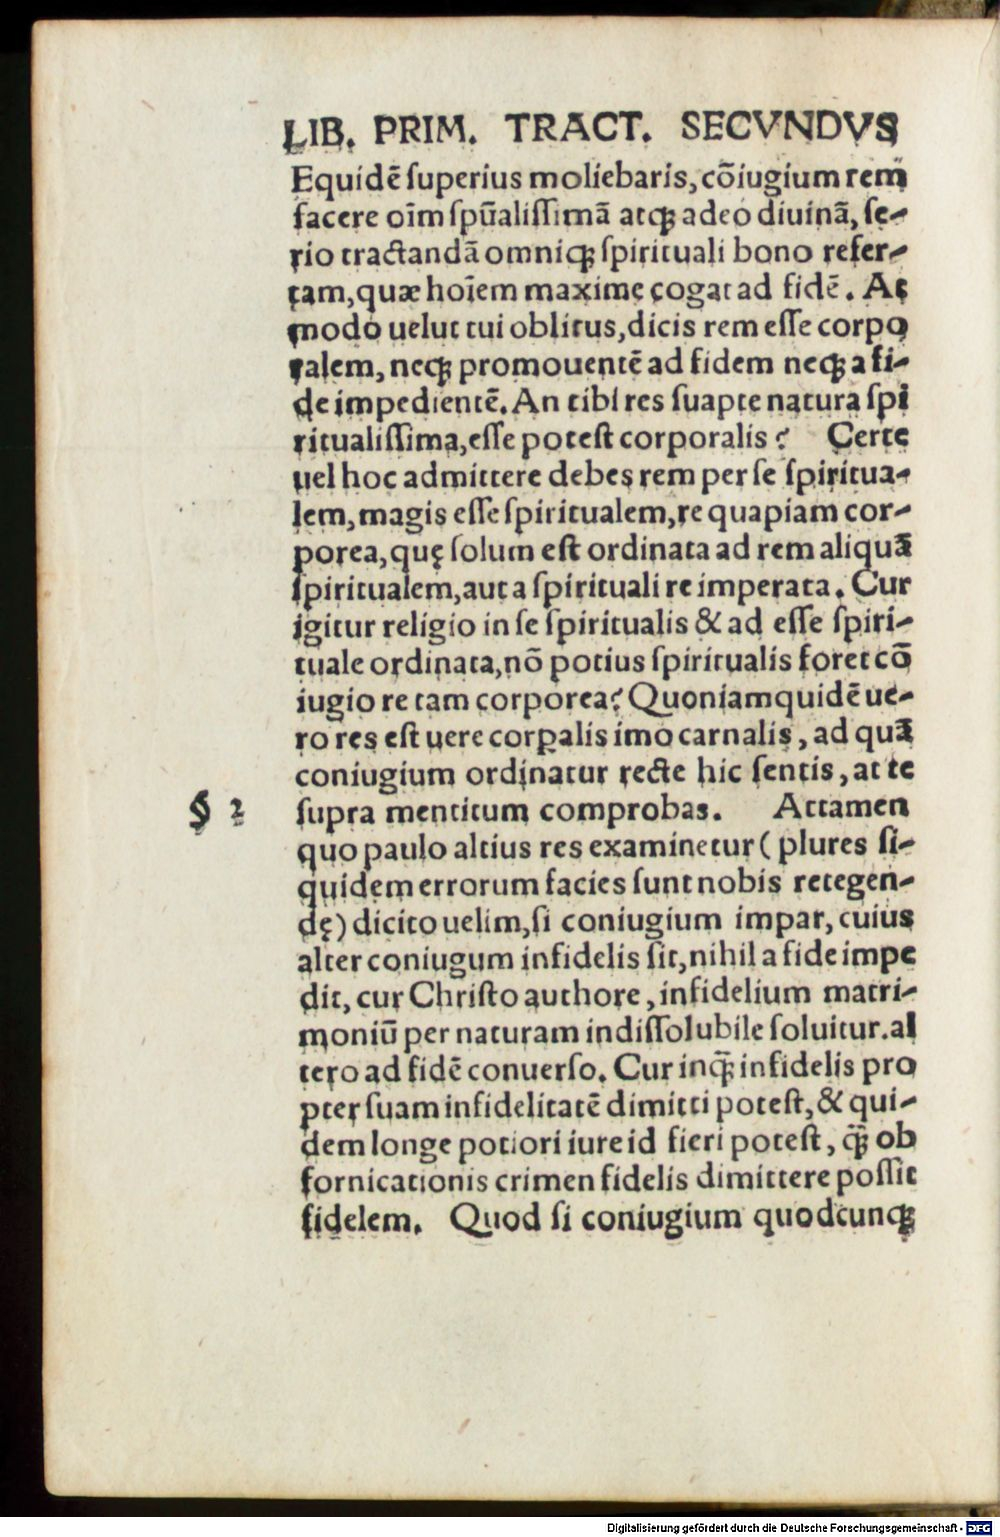 LIB. PRIM. TRACT. SECVNDVS
Equidē ſuperius moliebaris, cōiugium rem
facere oīm ſpūaliſſimā atqꝫ adeo diuinā, ſe-
rio tractandā omniqꝫ ſpirituali bono refer-
tam, quæ hoīem maxime cogat ad fidē. At
modo uelut tui oblitus, dicis rem eſſe corpo
ralem, neqꝫ promouentē ad fidem neqꝫ a fi-
de impedientē. An tibi res ſuapte natura ſpi
ritualiſſima, eſſe poteſt corporalis? Certe
uel hoc admittere debes rem per ſe ſpiritua-
lem, magis eſſe ſpiritualem, re quapiam cor-
porea, quę ſolum eſt ordinata ad rem aliquā
ſpiritualem, aut a ſpirituali re imperata. Cur
igitur religio in ſe ſpiritualis & ad eſſe ſpiri-
tuale ordinata, nō potius ſpiritualis foret cō
iugio re tam corporea? Quoniamquidē ue-
ro res eſt uere corꝑalis imo carnalis, ad quā
coniugium ordinatur recte hic ſentis, at te
§ 2 ſupra mentitum comprobas. Attamen
quo paulo altius res examinetur (plures ſi-
quidem errorum facies ſunt nobis retegen-
dę) dicito uelim, ſi coniugium impar, cuius
alter coniugum infidelis ſit, nihil a fide impe
dit, cur Chriſto authore, infidelium matri-
moniū per naturam indiſſolubile ſoluitur. al
tero ad fidē conuerſo. Cur inq̄ꝫ infidelis pro
pter ſuam infidelitatē dimitti poteſt, & qui-
dem longe potiori iure id fieri poteſt, q̄ꝫ ob
fornicationis crimen fidelis dimittere poſſit
fidelem. Quod ſi coniugium quodcunqꝫ
Digitalisierung gefördert durch die Deutsche Forschungsgemeinschaft - DFG